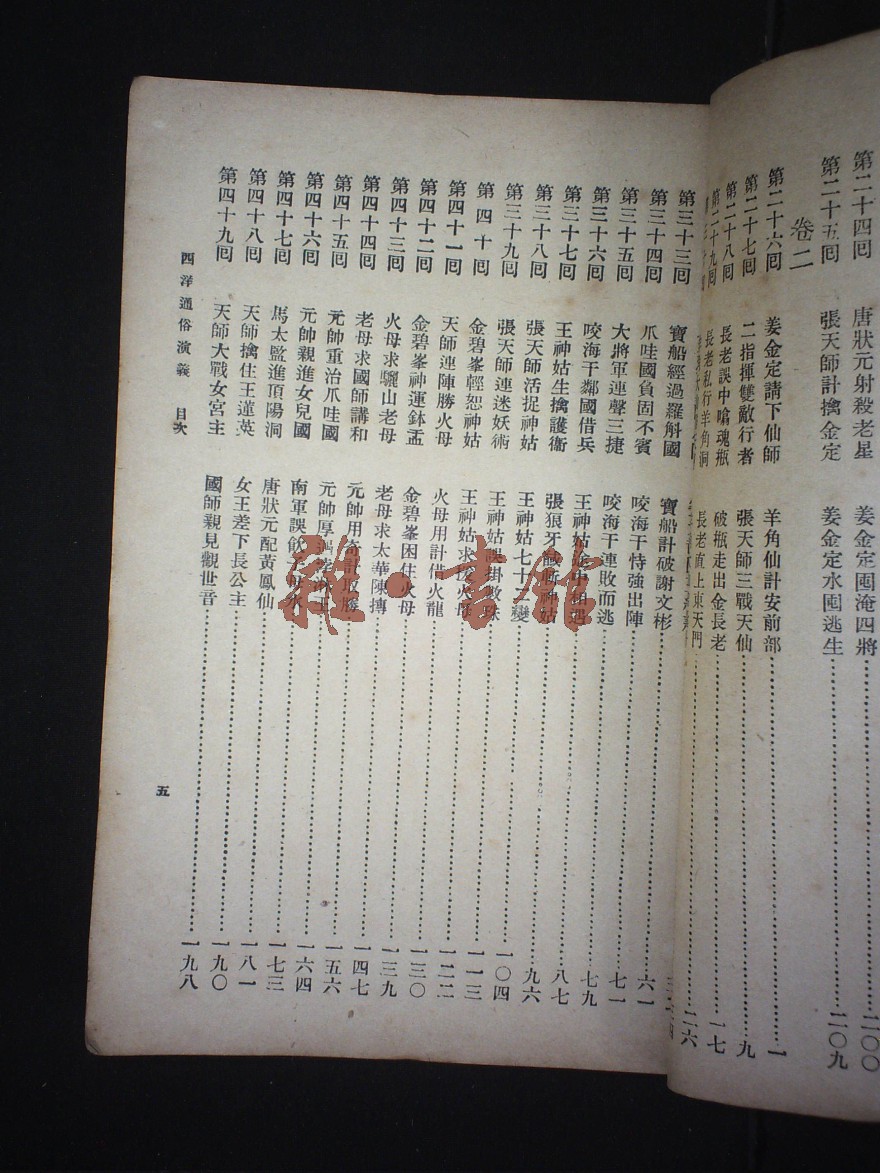 第二十四囘 唐狀元射殺老星 姜金定囤淹四將……二〇〇
第二十五囘 張天師計擒金定 姜金定水囤逃生……二〇九
卷二
第二十六囘 姜金定請下仙師 羊角仙計安前部……一
第二十七囘 二指揮雙敵行者 張天師三戰天仙……九
第二十八囘 長老誤中喰魂瓶 破瓶走出金長老……一七
第二十九囘 長老私行羊角洞 長老直上東天門……二六
第三十三囘 寶船經過羅斛國 寶船計破謝文彬……六一
第三十四囘 爪哇國負固不賓 咬海干恃強出陣……七一
第三十五囘 大將軍連聲三捷 咬海干連敗而逃……七九
第三十六囘 咬海干鄰國借兵 王神姑途中相遇……八七
第三十七囘 王神姑生擒護衞 張狼牙馘斷神姑……九六
第三十八囘 張天師活捉神姑 王神姑七十二變……一〇四
第三十九囘 張天師連迷妖術 王神姑誤掛數珠……一一三
第四十囘 金碧峯輕恕神姑 王神姑求援火母……一二二
第四十一囘 天師連陣勝火母 火母用計借火龍……一三〇
第四十二囘 金碧峯神運鉢盂 金碧峯困住火母……一三九
第四十三囘 火母求驪山老母 老母求太華陳摶……一四七
第四十四囘 老母求國師講和 元帥用奇計取勝……一五六
第四十五囘 元帥重治爪哇國 元帥厚遇淋王……一六四
第四十六囘 元帥親進女兒國 南軍誤飲子母水……一七三
第四十七囘 馬太監進頂陽洞 唐狀元配黃鳳仙……一八一
第四十八囘 天師擒住王蓮英 女王差下長公主……一九〇
第四十九囘 天師大戰女宮主 國師親見觀世音……一九八
西洋通俗演義 目次
五
雜·書館